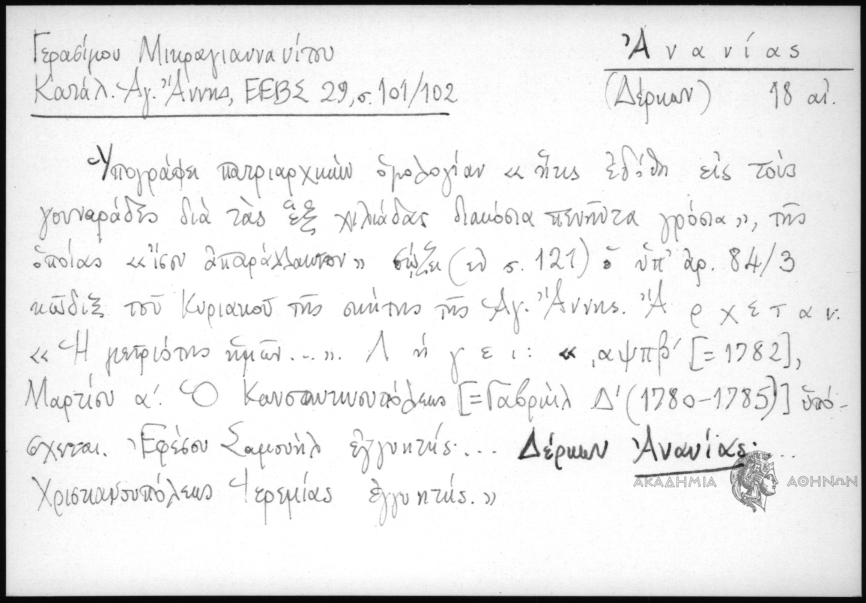 Γερασίμου Μικραγιαννανίτου
Κατάλ. Ἁγ. Ἄννης, ΕΕΒΣ 29, σ. 101/102
Ἀνανίας
(Δέρκων) 18 αἰ.
Ὑπογράφει πατριαρχικὴν ὁμολογίαν «ἥτις ἐδόθη εἰς τοὺς
γουναράδες διὰ τὰς ἓξ χιλιάδας διακόσια πενῆντα γρόσια», τῆς
ὁποίας «ἴσον ἀπαράλλακτον» σῴζει (ἐν σ. 121) ὁ ὑπ' ἀρ. 84/3
κῶδιξ τοῦ Κυριακοῦ τῆς σκήτης τῆς Ἁγ. Ἄννης. Ἄρχεται:
«Ἡ μετριότης ἡμῶν...». Λήγει: «͵αψπβ' [=1782],
Μαρτίου α'. Ὁ Κωνσταντινουπόλεως [=Γαβριὴλ Δ' (1780-1785)] ὑπό-
σχεται. Ἐφέσου Σαμουὴλ ἐγγυητής.... Δέρκων Ἀνανίας....
Χριστιανουπόλεως Ἱερεμίας ἐγγυητής.»
ΑΚΑΔΗΜΙΑ ΑΘΗΝΩΝ